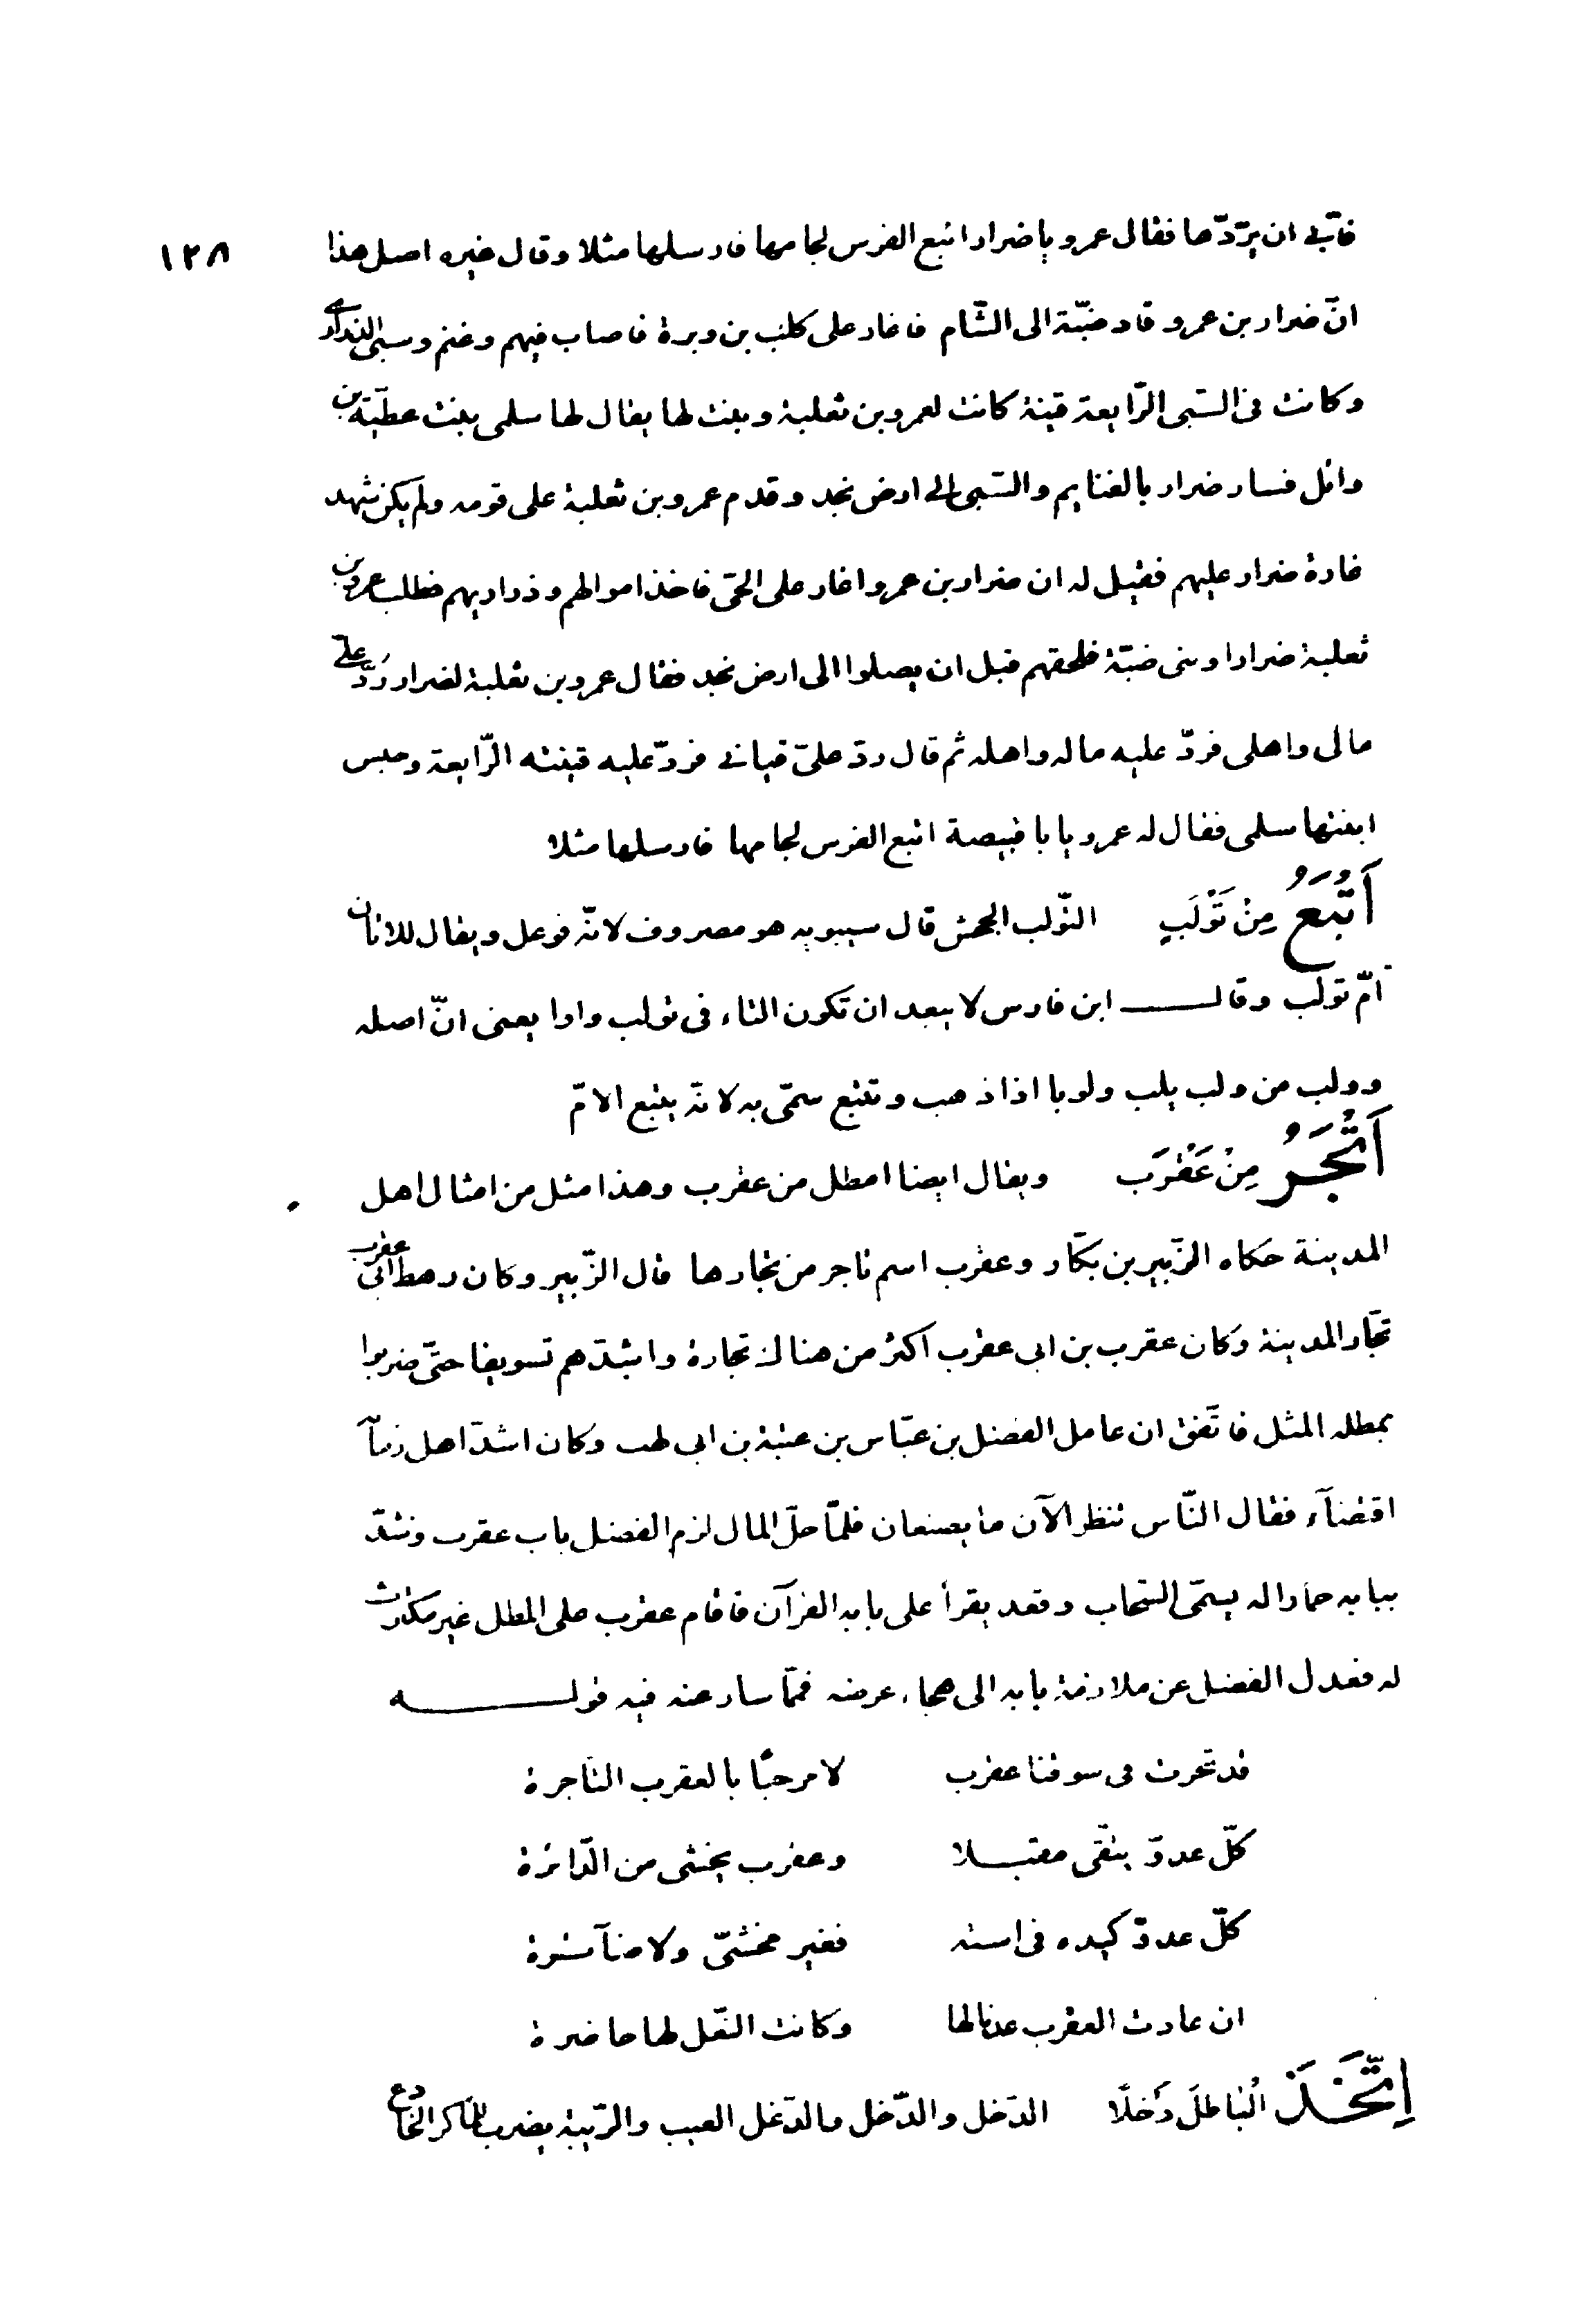 ١٢٨
فأبى ان يردّها فقال عمرو يا ضرار اتبع الفرس لجامها فارسلها مثلا وقال غيره اصل هذا
انّ ضرار بن عمرو قاد ضبّة الى الشّام فاغار على كلب بن وبرة فاصاب فيهم وغنم وسبى الذرارى
وكانت فى السّبى الرّايعة قينة كانت لعمرو بن ثعلبة وبنت لها يقال لها سلمى بنت عطيّة بن
وائل فسار ضرار بالغنايم والسّبى الى ارض نجد وقدم عمرو بن ثعلبة على قومه ولم يكن شهد
غارة ضرار عليهم فقيل له ان ضرار بن عمرو اغار على الحىّ فاخذ اموالهم وذراريهم فطلب عمرو بن
ثعلبة ضرارا وبنى ضبّة فلحقهم قبل ان يصلوا الى ارض نجد فقال عمرو بن ثعلبة لضرار رُدّ علىّ
مالى واهلى فردّ عليه ماله واهله ثم قال ردّ علىّ قيانى فردّ عليه قينته الرّايعة وحبس
ابنتها سلمى فقال له عمرو يا با قبيصة اتبع الفرس لجامها فارسلها مثلا
اَتْبَعُ مِنْ تَوْلَبٍ التّولب الجحش قال سيبويه هو مصروف لانّه فوعل ويقال للاتان
امّ تولب وقال ابن فارس لا يبعد ان تكون التاء فى تولب واوا يعنى انّ اصله
وولب من ولب يلب ولوبا اذا ذهب وتتبع سمّى به لانّه يتبع الامّ
اَتْجَرُ مِنْ عَقْرَب ويقال ايضا امطل من عقرب وهذا مثل من امثال اهل
المدينة حكاه الزّبير بن بكّار وعقرب اسم تاجر من تجارها قال الزّبير وكان رهط ابى عقرب
تجّار المدينة وكان عقرب بن ابى عقرب اكثر من هناك تجارة واشدّهم تسويفا حتّى ضربوا
بمطله المثل فاتّفق ان عامل الفضل بن عبّاس بن عتبة بن ابى لهب وكان اشدّ اهل زمانه
اقتضآء فقال النّاس ننظر الآن ما يصنعان فلمّا حلّ المال لزم الفضل باب عقرب وشدّ
ببابه حمارا له يسمّى السّحاب وقعد يقرأ على بابه القرآن فاقام عقرب على المطل غير مكترث
له فعدل الفضل عن ملازمة بابه الى هجاء عرضه فمّما سار عنه فيه قوله
قد تجرت فى سوقنا عقرب لا مرحبًا بالعقرب التّاجرة
كلّ عدوّ يتّقى مقبلا وعقرب يخشى من الدّائرة
كلّ عدوّ كيده فى استه فغير مخشىّ ولا ضآئرة
ان عادت العقرب عدنا لها وكانت النّعل لها حاضرة
اِتَّخَذَ الْبٰاطِلَ دَخَلًا الدّخل والدّخل والدّغل العيب والرّيبة يضرب للماكر الخادع